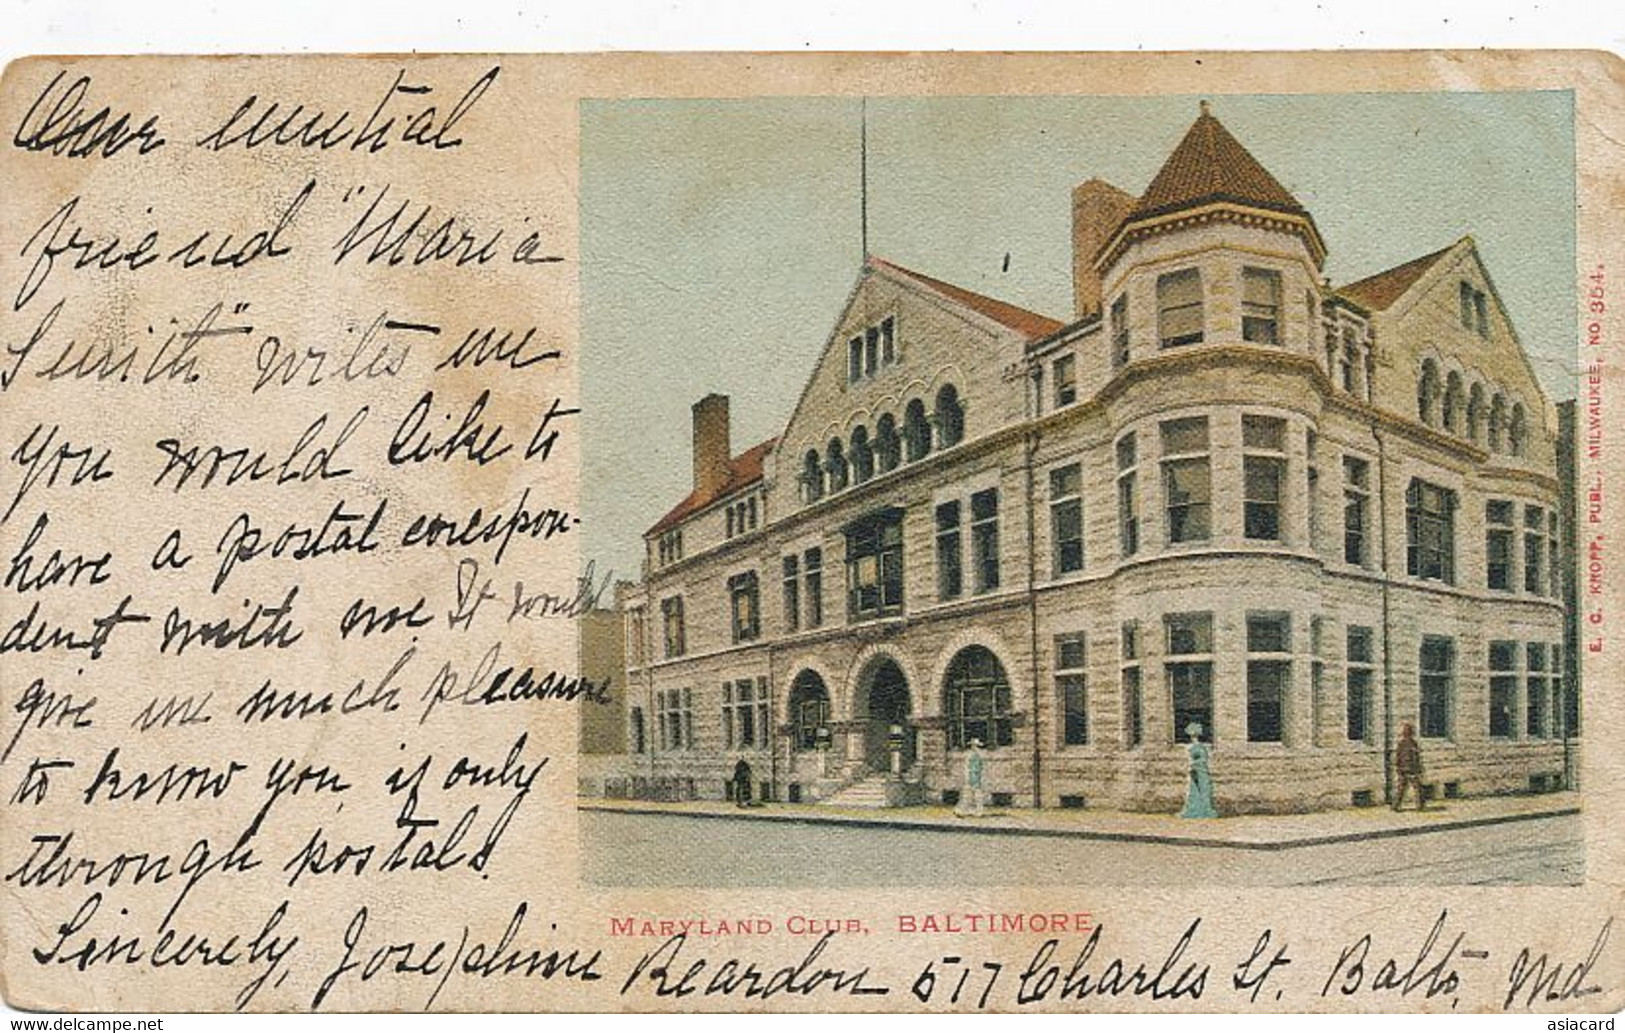 Our mutual
friend "Maria
Smith" writes me
you would like to
have a postal correspon-
dent with me. It would
give me much pleasure
to know you, if only
through postals.
Sincerely, Josephine Reardon 517 Charles St. Balto, Md
MARYLAND CLUB, BALTIMORE
E. C. KROPP, PUBL., MILWAUKEE, NO 354.
delcampe.net
asiacard